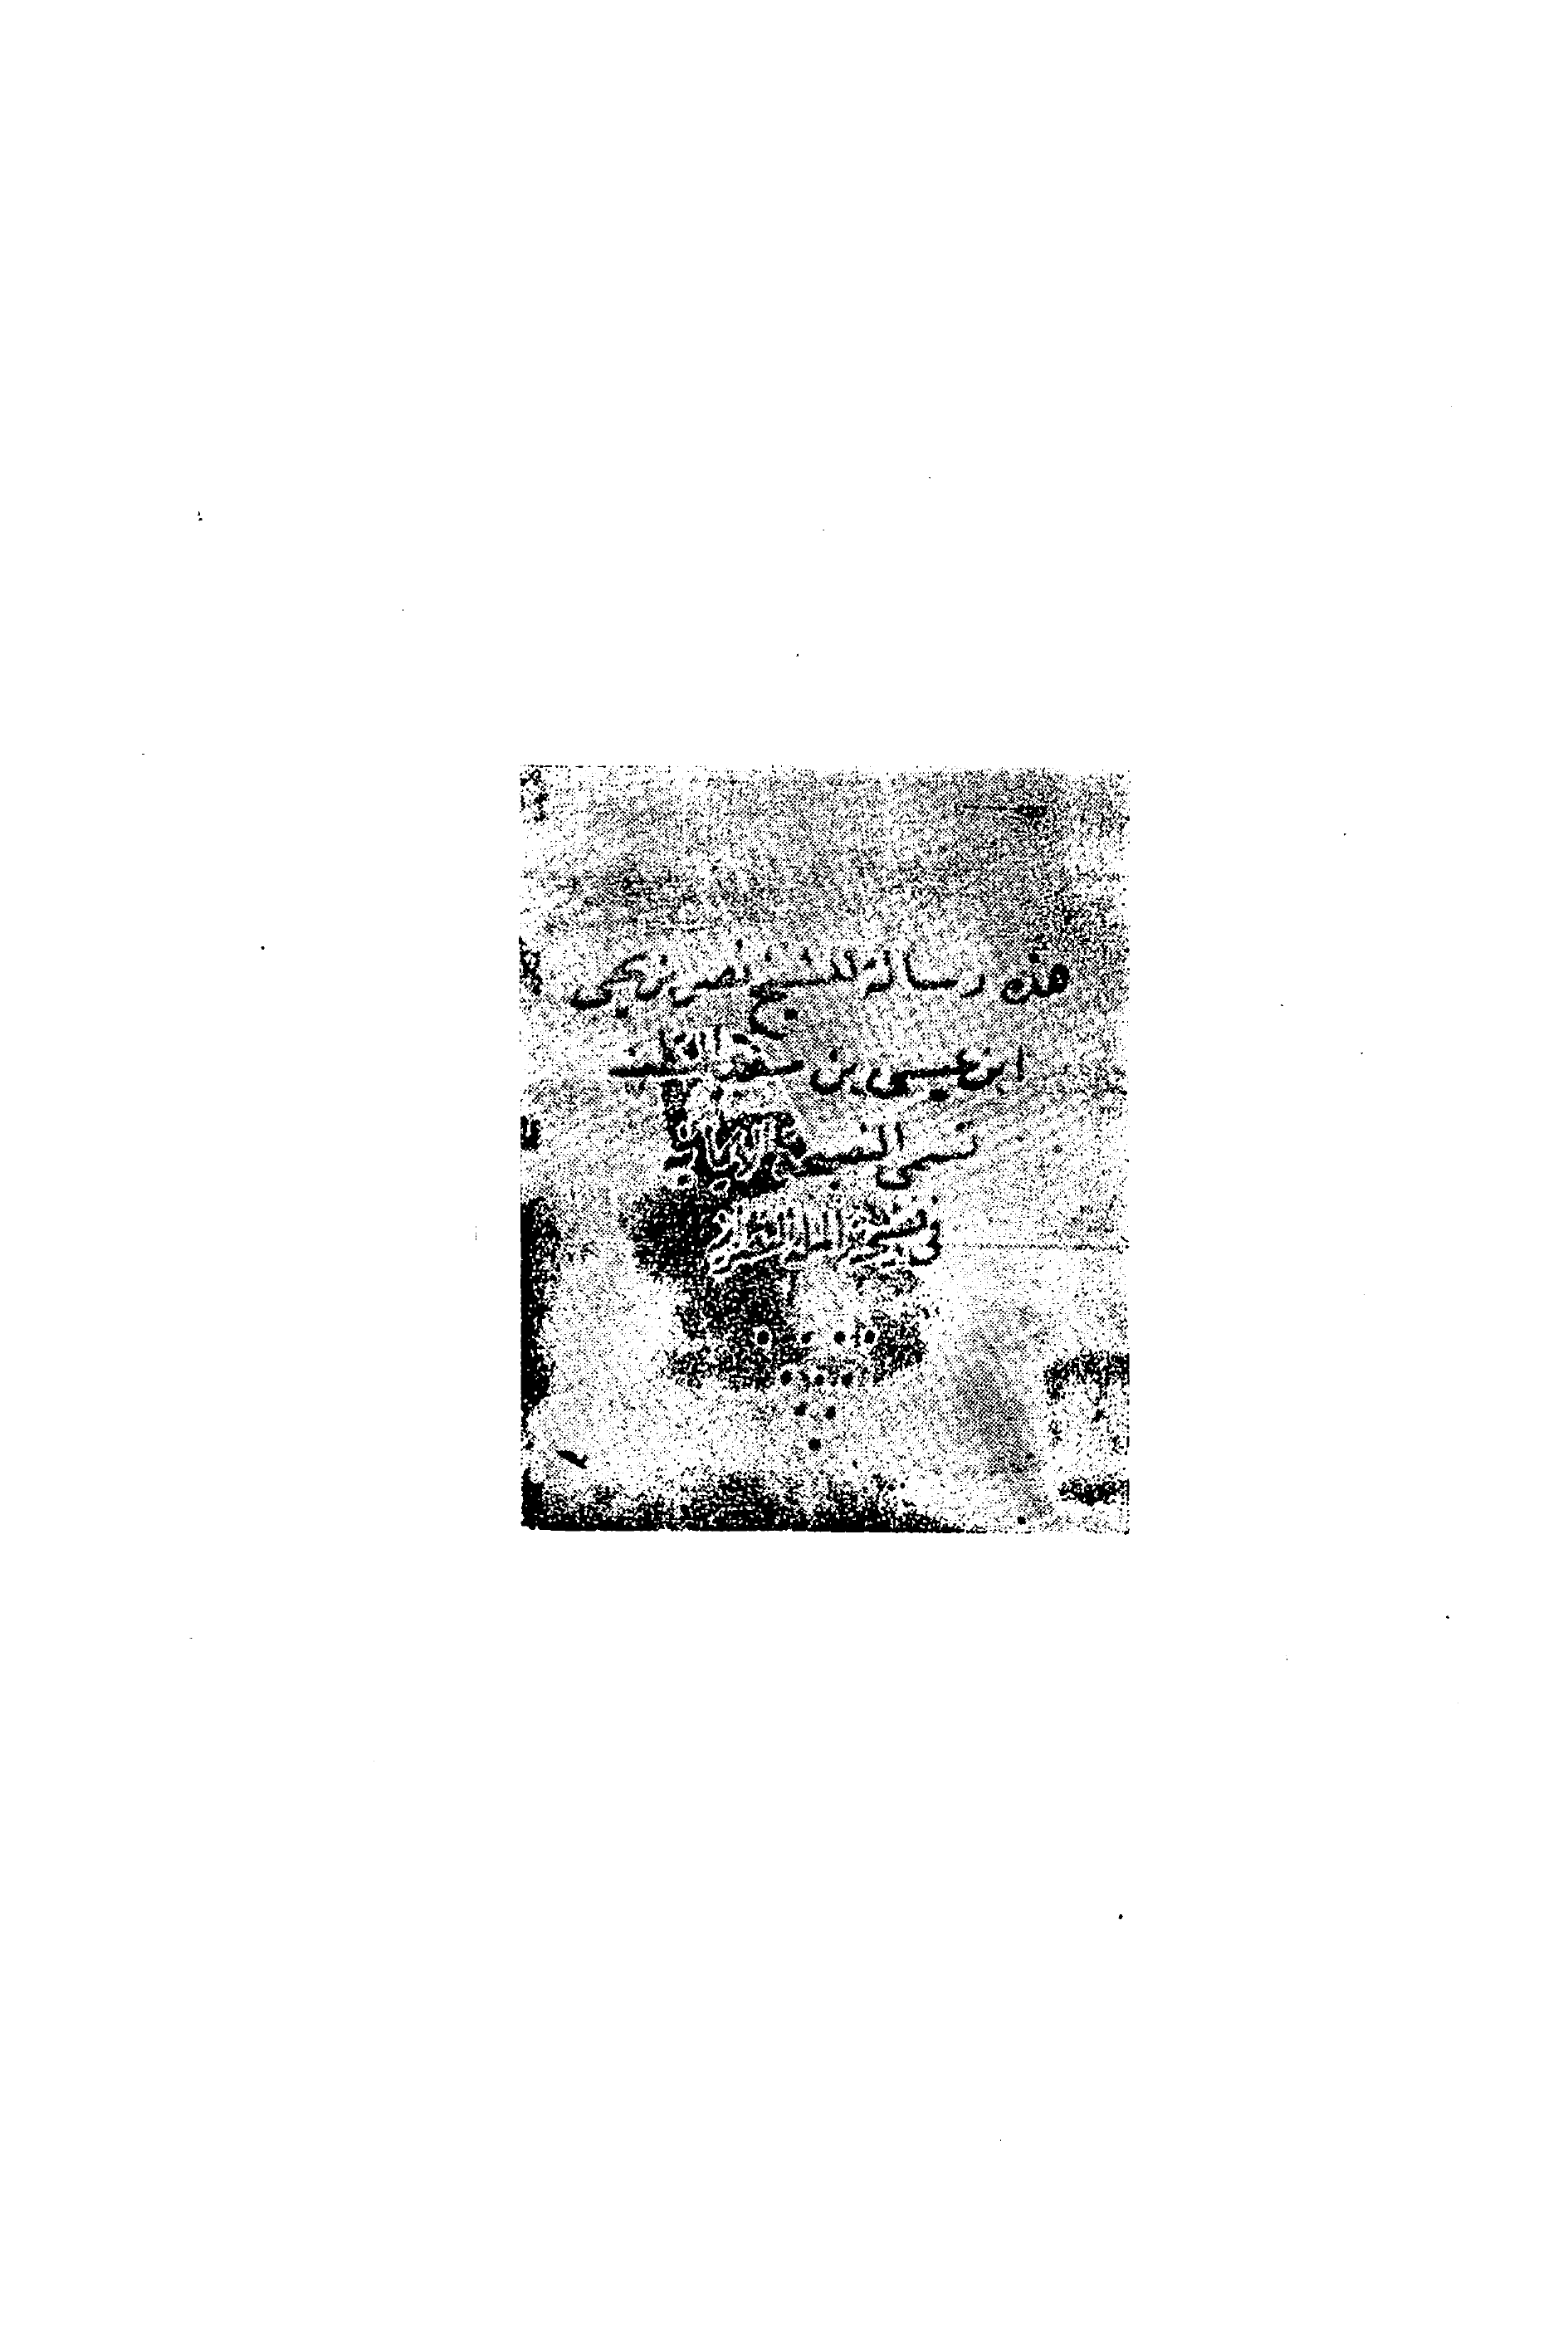 هذه رسالة للشيخ نصر بن يحيى
ابن عيسى بن سعيد المتطبب
تسمى النصيحة الإيمانية
في فضيحة الملة النصرانية